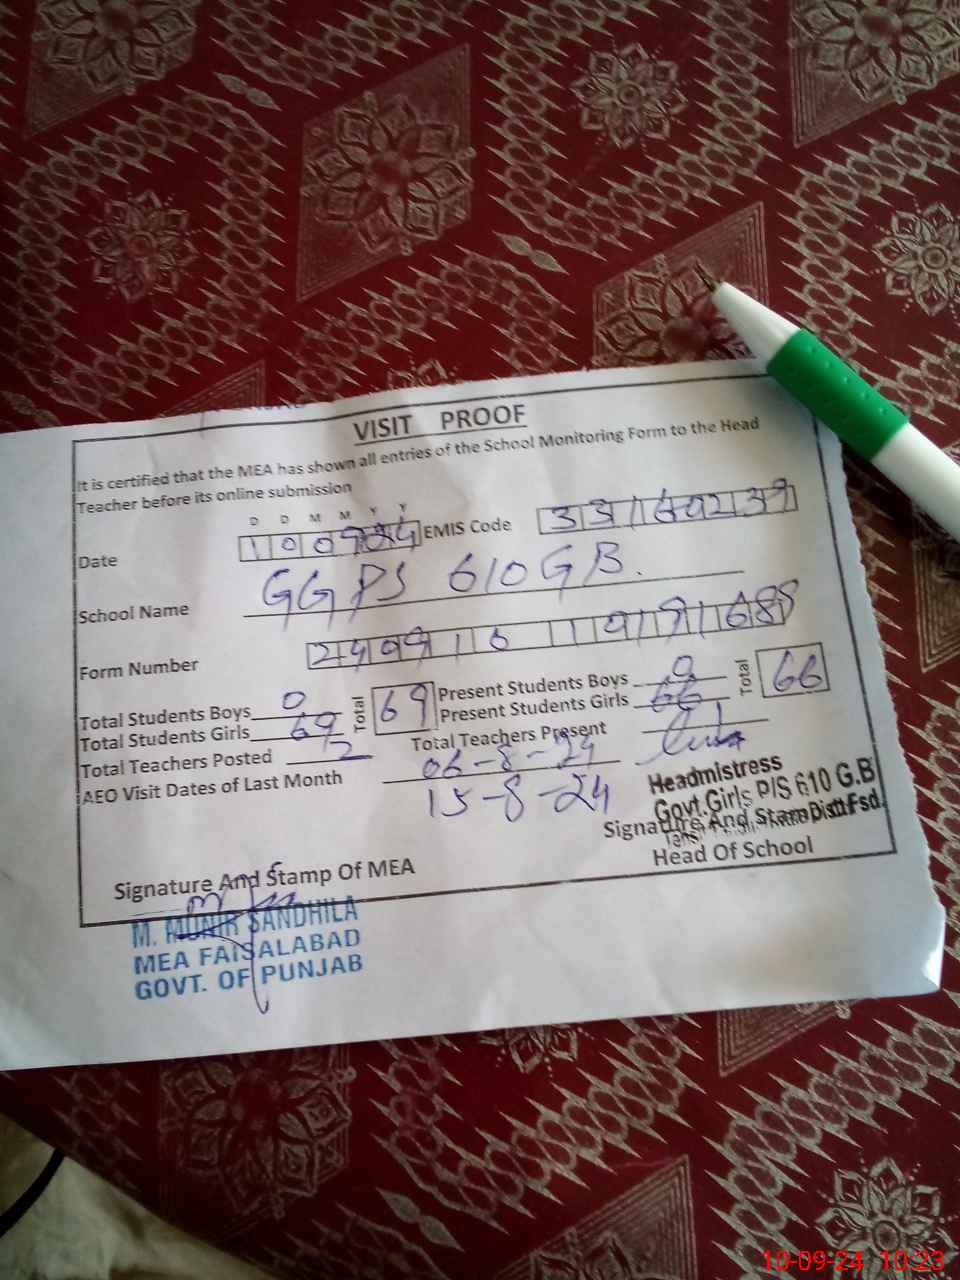 VISIT PROOF
It is certified that the MEA has shown all entries of the School Monitoring Form to the Head
Teacher before its online submission
D D M M Y Y
Date 100924 EMIS Code 33160239
School Name GGPS 610 GB.
Form Number
Total Students Boys 0 Total 69 Present Students Boys 0 Total 66
Total Students Girls 69 Present Students Girls 66
Total Teachers Posted 2 Total Teachers Present
AEO Visit Dates of Last Month 06-8-24
15-8-24
Headmistress
Govt.Girls P/S 610 G.B
Signature And Stamp Distt.Fsd.
Head Of School
Signature And Stamp Of MEA
M. MUNIR SANDHILA
MEA FAISALABAD
GOVT. OF PUNJAB
10-09-24 10:23